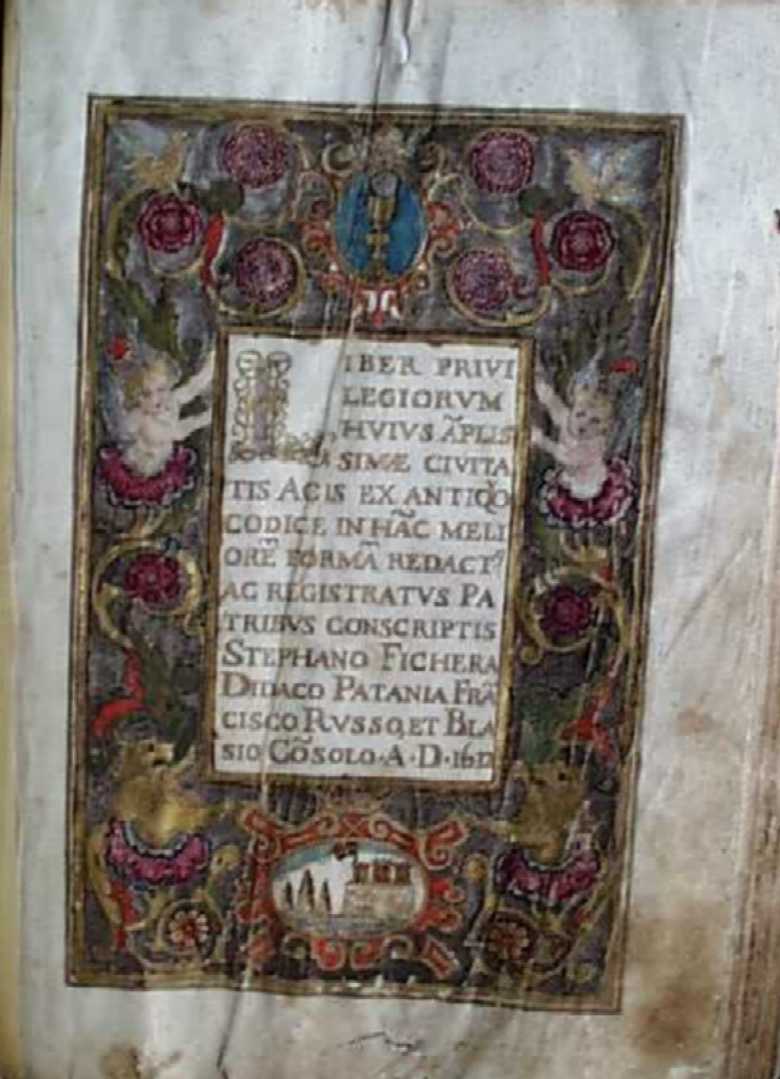 LIBER PRIVI
LEGIORVM
HVIVS ÃPLIS
SIMÆ CIVITA
TIS ACIS EX ANTIQVO
CODICE IN HÃC MELI
ORẼ FORMÃ REDACT9
AC REGISTRATVS PA
TRIBVS CONSCRIPTIS
STEPHANO FICHERA
DIDACO PATANIA FRÃ
CISCO RVSSO, ET BLA
SIO CÕSOLO · A · D ·